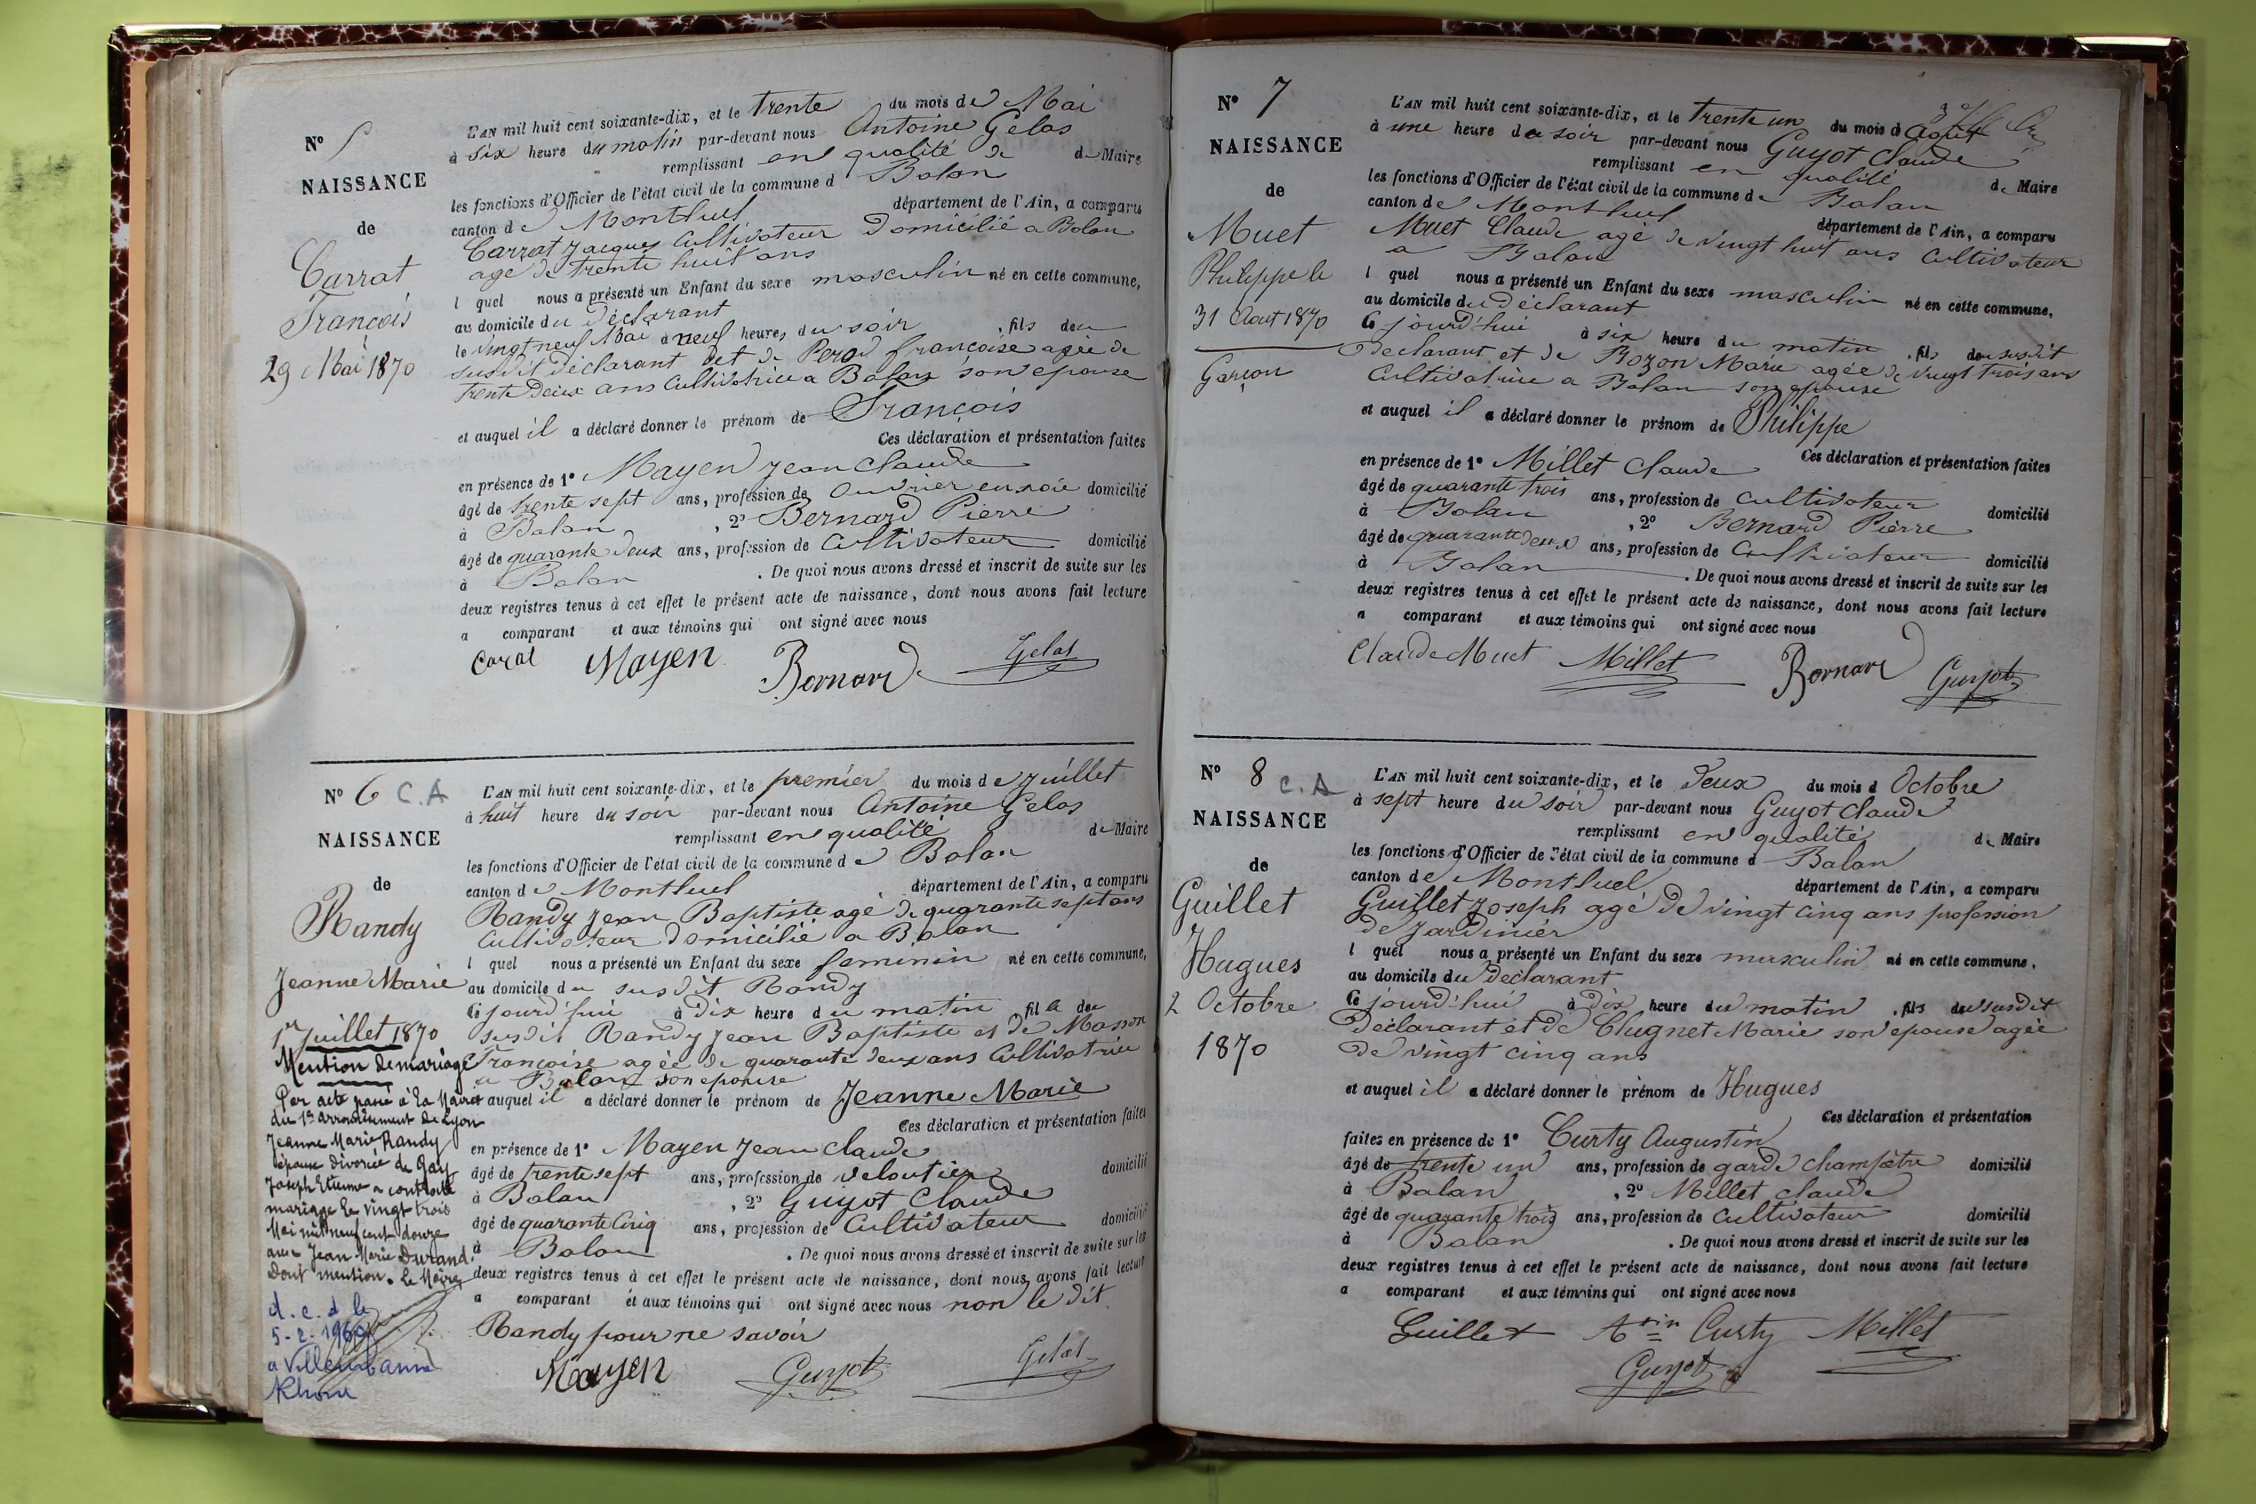 N° 5
NAISSANCE
de
Carrat
François
29 Mai 1870
L'AN mil huit cent soixante-dix, et le trente du mois de Mai
à six heure du matin par-devant nous Antoine Gelas
remplissant en qualité de de Maire
les fonctions d'Officier de l'état civil de la commune d Balan
canton de Montluel département de l'Ain, a comparu
Carrat Jacques Cultivateur Domicilié a Balan
age de trente huit ans
l quel nous a présenté un Enfant du sexe masculin né en cette commune,
au domicile du déclarant
le vingt neuf Mai à neuf heures du soir , fils deu
susdit déclarant et de françoise agée de
trente deux ans Cultivatrice a Balan son epouse
et auquel il a déclaré donner le prénom de François
Ces déclaration et présentation faites
en présence de 1° Mayen Jean Claude
âgé de trente sept ans, profession de Ouvrier en soie domicilié
à Balan , 2° Bernard Pierre
âgé de quarante deux ans, profession de Cultivateur domicilié
à Balan . De quoi nous avons dressé et inscrit de suite sur les
deux registres tenus à cet effet le présent acte de naissance, dont nous avons fait lecture
a comparant et aux témoins qui ont signé avec nous
Carat Mayen Bernard Gelas
N° 6 C.A
NAISSANCE
de
Randy
Jeanne Marie
1er Juillet 1870
Mention de mariage
Par acte passé à la Mairie
du 1er arrondissement de Lyon
Jeanne Marie Randy
épouse divorcée de Gay
Joseph Etienne a contracté
mariage le vingt trois
Mai mil neuf cent douze
avec Jean Marie Durand.
Dont mention. Le Maire
d.c.d le
5-2-1960
a Villeurbanne
Rhone
L'AN mil huit cent soixante-dix, et le premier du mois de Juillet
à huit heure du soir par-devant nous Antoine Gelas
remplissant en qualité de Maire
les fonctions d'Officier de l'état civil de la commune de Balan
canton de Montluel département de l'Ain, a comparu
Randy Jean Baptiste agé de quarante sept ans
Cultivateur domicilié a Balan
l quel nous a présenté un Enfant du sexe feminin né en cette commune,
au domicile du susdit Randy
Ce jourd'hui à dix heure du matin , fille deu
susdit Randy Jean Baptiste et de Masson
Françoise agée de quarante deux ans Cultivatrice
a Balan son epouse
et auquel il a déclaré donner le prénom de Jeanne Marie
Ces déclaration et présentation faites
en présence de 1° Mayen Jean Claude
âgé de trente sept ans, profession de veloutier domicilié
à Balan , 2° Guyot Claude
âgé de quarante Cinq ans, profession de Cultivateur domicilié
à Balan . De quoi nous avons dressé et inscrit de suite sur les
deux registres tenus à cet effet le présent acte de naissance, dont nous avons fait lecture
a comparant et aux témoins qui ont signé avec nous non le dit
Randy pour ne savoir
Mayen Guyot Gelas
N° 7
NAISSANCE
de
Muet
Philippe le
31 Aout 1870
Garçon
L'AN mil huit cent soixante-dix, et le trente un du mois d Aout
à une heure du soir par-devant nous Guyot Claude
remplissant en qualité de Maire
les fonctions d'Officier de l'état civil de la commune de Balan
canton de Montluel département de l'Ain, a comparu
Muet Claude agé de vingt huit ans Cultivateur
a Balan
l quel nous a présenté un Enfant du sexe masculin né en cette commune,
au domicile du déclarant
Ce jourd'hui à six heure du matin , fils deu susdit
declarant et de Bozon Marie agée de vingt trois ans
Cultivatrice a Balan son epouse
et auquel il a déclaré donner le prénom de Philippe
Ces déclaration et présentation faites
en présence de 1° Millet Claude
âgé de quarante trois ans, profession de Cultivateur domicilié
à Balan , 2° Bernard Pierre
âgé de quarante deux ans, profession de Cultivateur domicilié
à Balan . De quoi nous avons dressé et inscrit de suite sur les
deux registres tenus à cet effet le présent acte de naissance, dont nous avons fait lecture
a comparant et aux témoins qui ont signé avec nous
Claude Muet Millet Bernard Guyot
N° 8 C.A
NAISSANCE
de
Guillet
Hugues
2 Octobre
1870
L'AN mil huit cent soixante-dix, et le deux du mois d Octobre
à sept heure du soir par-devant nous Guyot Claude
remplissant en qualité de Maire
les fonctions d'Officier de l'état civil de la commune d Balan
canton de Montluel département de l'Ain, a comparu
Guillet Joseph agé de vingt cinq ans profession
de Jardinier
l quel nous a présenté un Enfant du sexe masculin né en cette commune,
au domicile du declarant
Ce jourd'hui à dix heure du matin , fils deu susdit
declarant et de Clugnet Marie son epouse agée
de vingt cinq ans
et auquel il a déclaré donner le prénom de Hugues
Ces déclaration et présentation
faites en présence de 1° Curty Augustin
âgé de trente un ans, profession de garde champêtre domicilié
à Balan , 2° Millet Claude
âgé de quarante trois ans, profession de Cultivateur domicilié
à Balan . De quoi nous avons dressé et inscrit de suite sur les
deux registres tenus à cet effet le présent acte de naissance, dont nous avons fait lecture
a comparant et aux témoins qui ont signé avec nous
Guillet Atin Curty Millet
Guyot